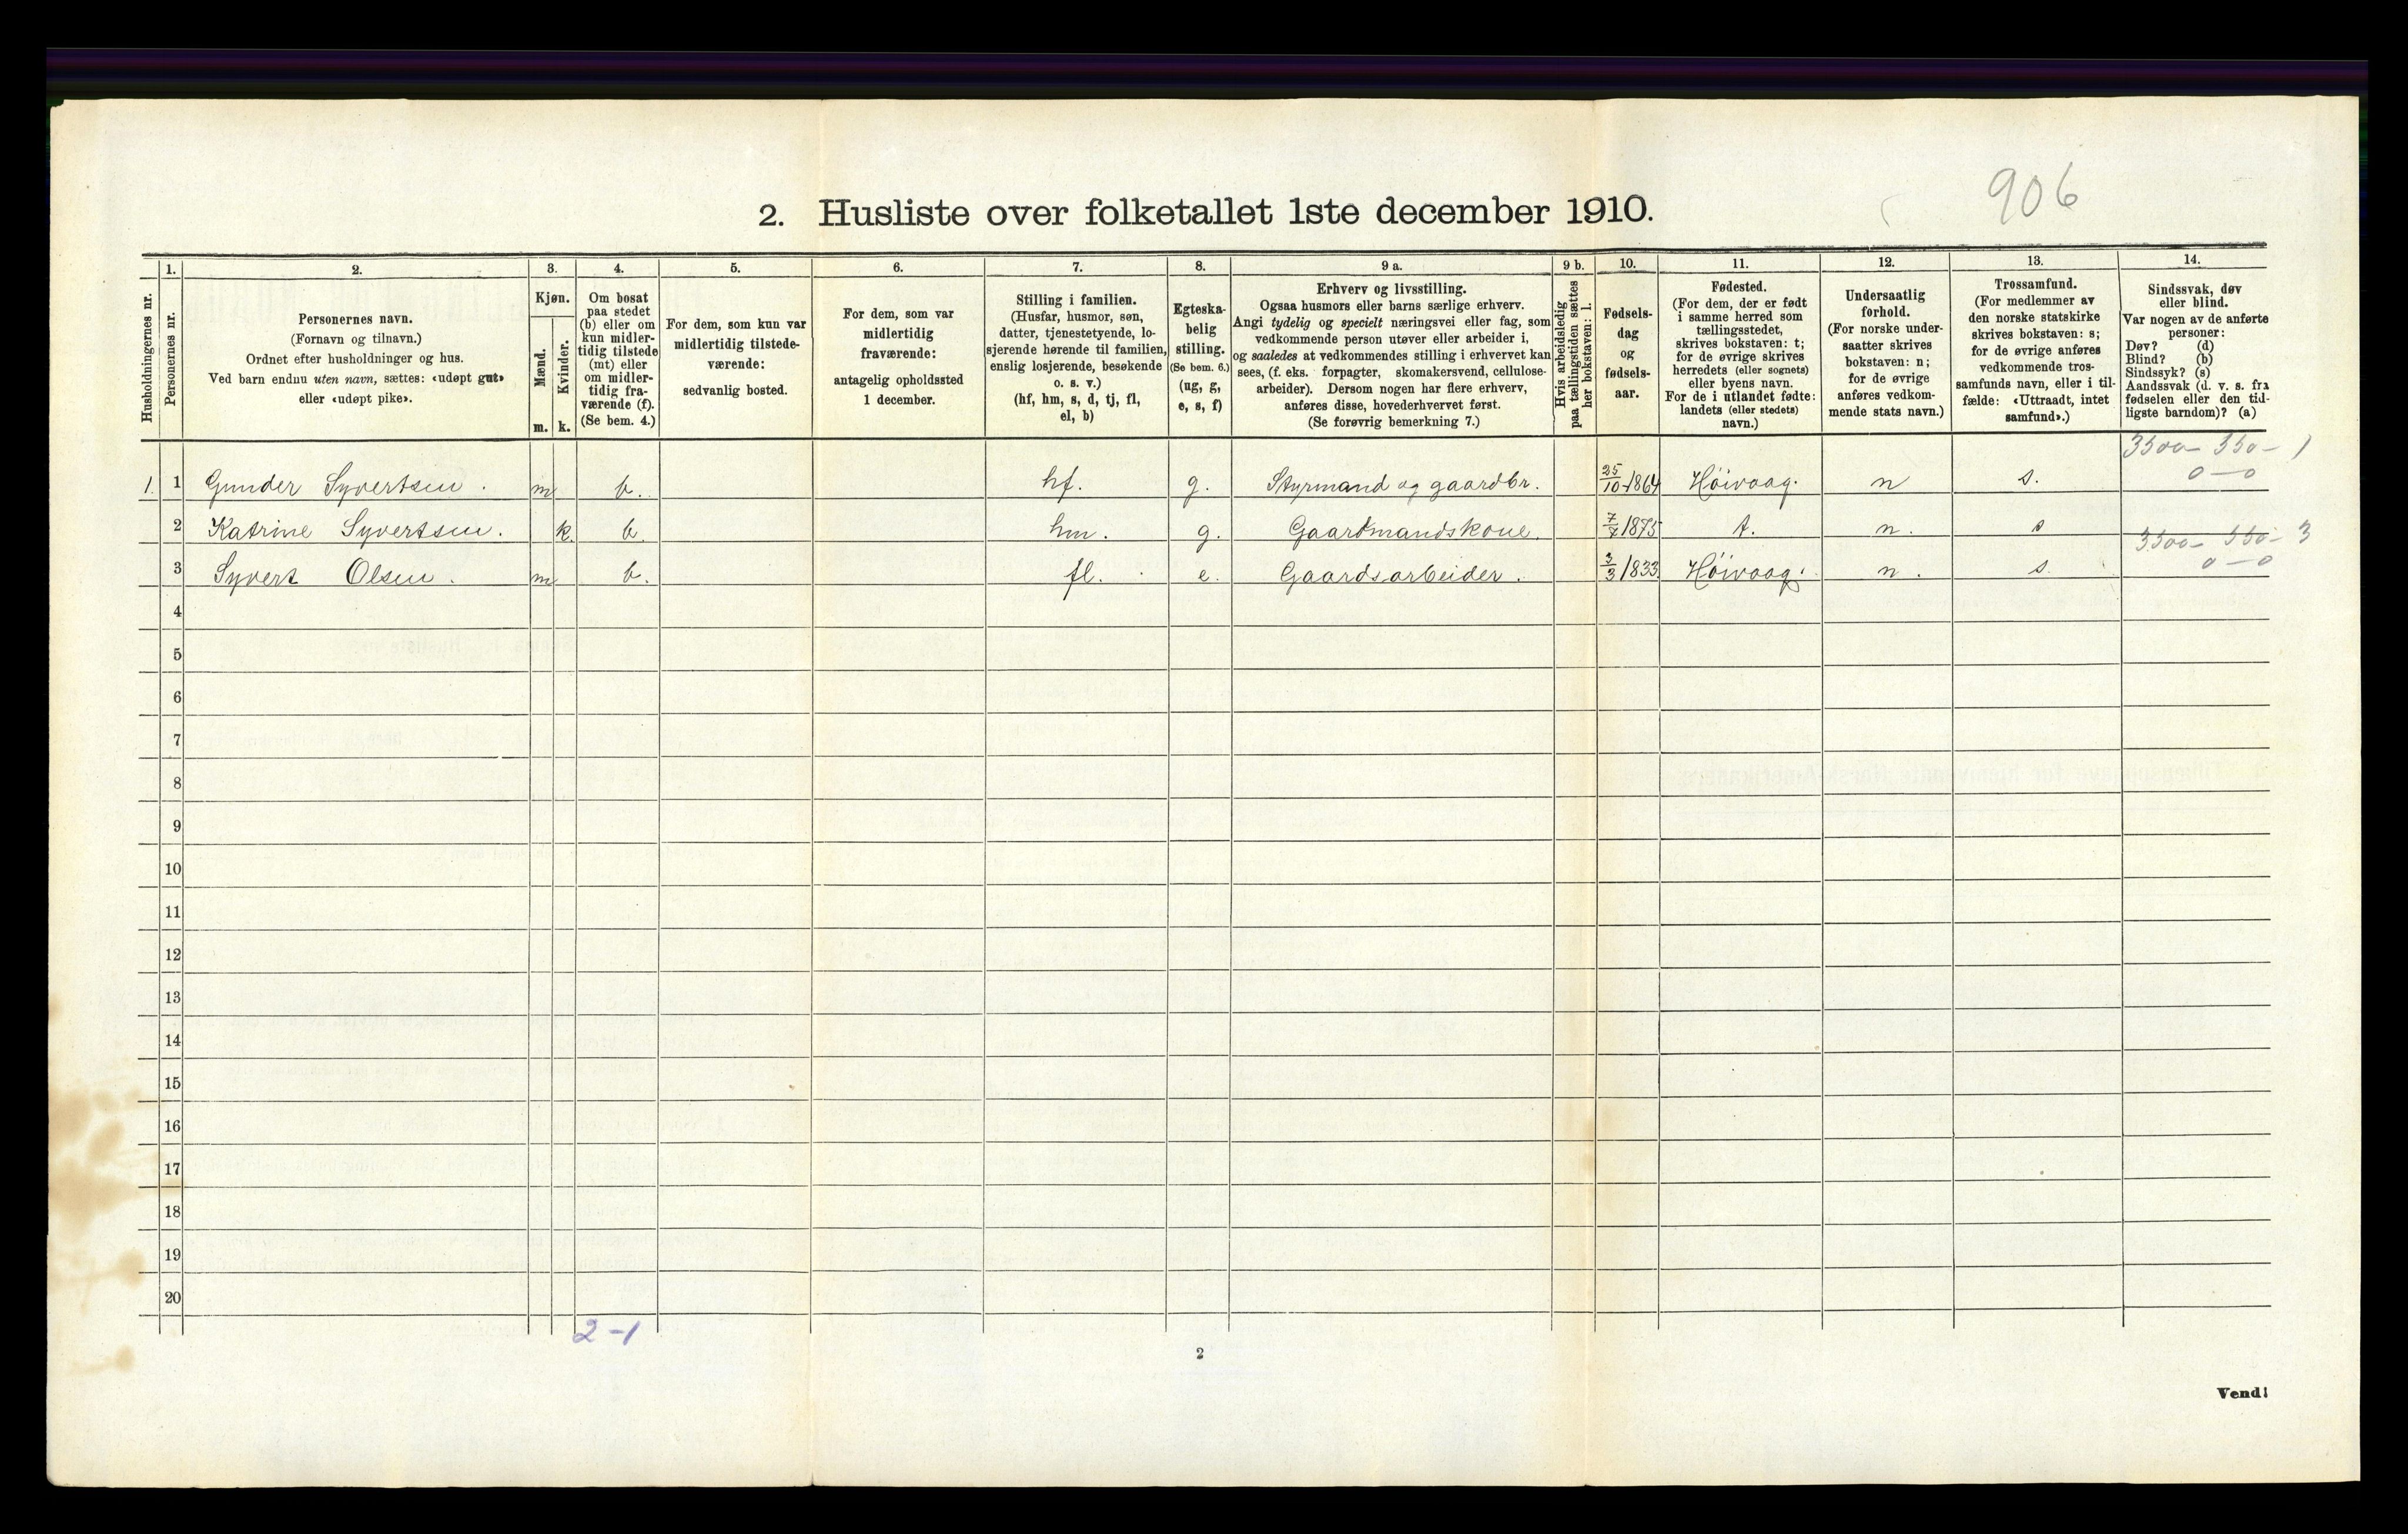 906
2. Husliste over folketallet 1ste december 1910.
Husholdningernes nr.
1.
Personernes nr.
2.
Personernes navn.
(Fornavn og tilnavn.)
Ordnet efter husholdninger og hus.
Ved barn endnu uten navn, sættes: «udøpt gut»
eller «udøpt pike».
3.
Kjøn.
Mænd.
Kvinder.
m. k.
4.
Om bosat
paa stedet
(b) eller om
kun midler-
tidig tilstede
(mt) eller
om midler-
tidig fra-
værende (f).
(Se bem. 4.)
5.
For dem, som kun var
midlertidig tilstede-
værende:
sedvanlig bosted.
6.
For dem, som var
midlertidig
fraværende:
antagelig opholdssted
1 december.
7.
Stilling i familien.
(Husfar, husmor, søn,
datter, tjenestetyende, lo-
sjerende hørende til familien,
enslig losjerende, besøkende
o. s. v.)
(hf, hm, s, d, tj, fl,
el, b)
8.
Egteska-
belig
stilling.
(Se bem. 6.)
(ug, g,
e, s, f)
9 a.
Erhverv og livsstilling.
Ogsaa husmors eller barns særlige erhverv.
Angi tydelig og specielt næringsvei eller fag, som
vedkommende person utøver eller arbeider i,
og saaledes at vedkommendes stilling i erhvervet kan
sees, (f. eks. forpagter, skomakersvend, cellulose-
arbeider). Dersom nogen har flere erhverv,
anføres disse, hovederhvervet først.
(Se forøvrig bemerkning 7.)
9 b.
Hvis arbeidsledig
paa tællingstiden sættes
her bokstaven: l.
10.
Fødsels-
dag
og
fødsels-
aar.
11.
Fødested.
(For dem, der er født
i samme herred som
tællingsstedet,
skrives bokstaven: t;
for de øvrige skrives
herredets (eller sognets)
eller byens navn.
For de i utlandet fødte:
landets (eller stedets)
navn.)
12.
Undersaatlig
forhold.
(For norske under-
saatter skrives
bokstaven: n;
for de øvrige
anføres vedkom-
mende stats navn.)
13.
Trossamfund.
(For medlemmer av
den norske statskirke
skrives bokstaven: s;
for de øvrige anføres
vedkommende tros-
samfunds navn, eller i til-
fælde: «Uttraadt, intet
samfund».)
14.
Sindssvak, døv
eller blind.
Var nogen av de anførte
personer:
Døv? (d)
Blind? (b)
Sindssyk? (s)
Aandssvak (d. v. s. fra
fødselen eller den tid-
ligste barndom)? (a)
3500 - 350 - 1
0 - 0
1. 1 Gunder Syvertsen. m b. hf. g. Styrmand og gaardbr. 25/10 1864 Høivaag. n s.
2 Katrine Syvertsen. k. b. hm. g. Gaardmandskone. 7/7 1875 t. n. s
3500 - 550 - 3
0 - 0
3 Syvert Olsen. m b. fl. e. Gaardsarbeider. 3/3 1833 Høivaag. n. s.
4
5
6
7
8
9
10
11
12
13
14
15
16
17
18
19
20
2-1
2
Vend!